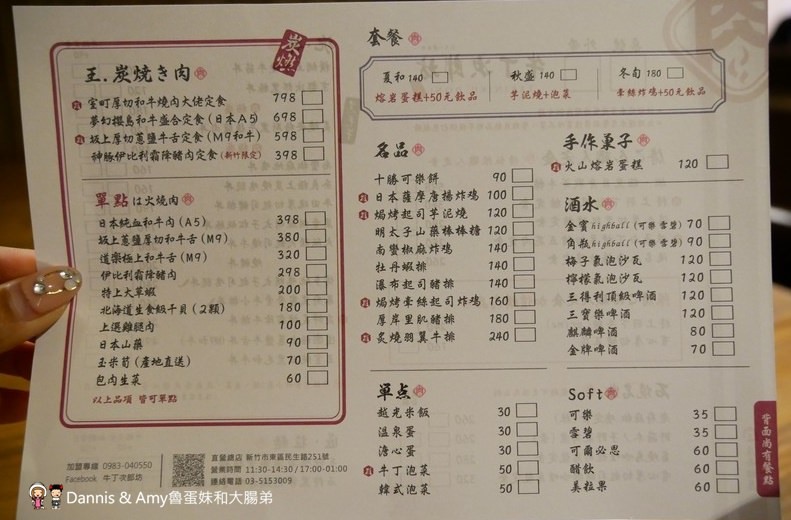 炭燃
王.炭焼き肉
室町厚切和牛燒肉大佬定食 798
夢幻櫻島和牛盛合定食(日本A5) 698
坂上厚切蔥鹽牛舌定食(M9和牛) 598
神豚伊比利霜降豬肉定食(新竹限定) 398
單點は火燒肉
日本純血和牛肉(A5) 398
坂上蔥鹽厚切和牛舌(M9) 380
道樂極上和牛舌(M9) 320
伊比利霜降豬肉 298
特上大草蝦 200
北海道生食級干貝(2顆) 180
上選雞腿肉 100
日本山藥 90
玉米筍(產地直送) 70
包肉生菜 60
以上品項 皆可單點
加盟專線 0983-040550
Facebook 牛丁次郎坊
直營總店 新竹市東區民生路251號
營業時間 11:30-14:30 / 17:00-01:00
連絡電話 03-5153009
套餐
夏和 140
熔岩蛋糕+50元飲品
秋盛 140
芋泥燒+泡菜
冬旬 180
牽絲炸雞+50元飲品
名品
十勝可樂餅 90
日本薩摩唐揚炸雞 100
焗烤起司芋泥燒 120
明太子山藥棒棒糖 120
南蠻椒麻炸雞 140
牡丹蝦排 140
瀑布起司豬排 140
焗烤牽絲起司炸雞 160
厚岸里肌豬排 180
炙燒羽翼牛排 240
單点
越光米飯 30
溫泉蛋 30
溏心蛋 30
牛丁泡菜 50
韓式泡菜 50
手作菓子
火山熔岩蛋糕 120
酒水
金賓highball(可樂 雪碧) 70
角瓶highball(可樂 雪碧) 90
梅子氣泡沙瓦 120
檸檬氣泡沙瓦 120
三得利頂級啤酒 120
三寶樂啤酒 120
麒麟啤酒 80
金牌啤酒 70
Soft
可樂 35
雪碧 35
可爾必思 60
醋飲 60
美粒果 60
背面尚有餐點
Dannis & Amy魯蛋妹和大腸弟